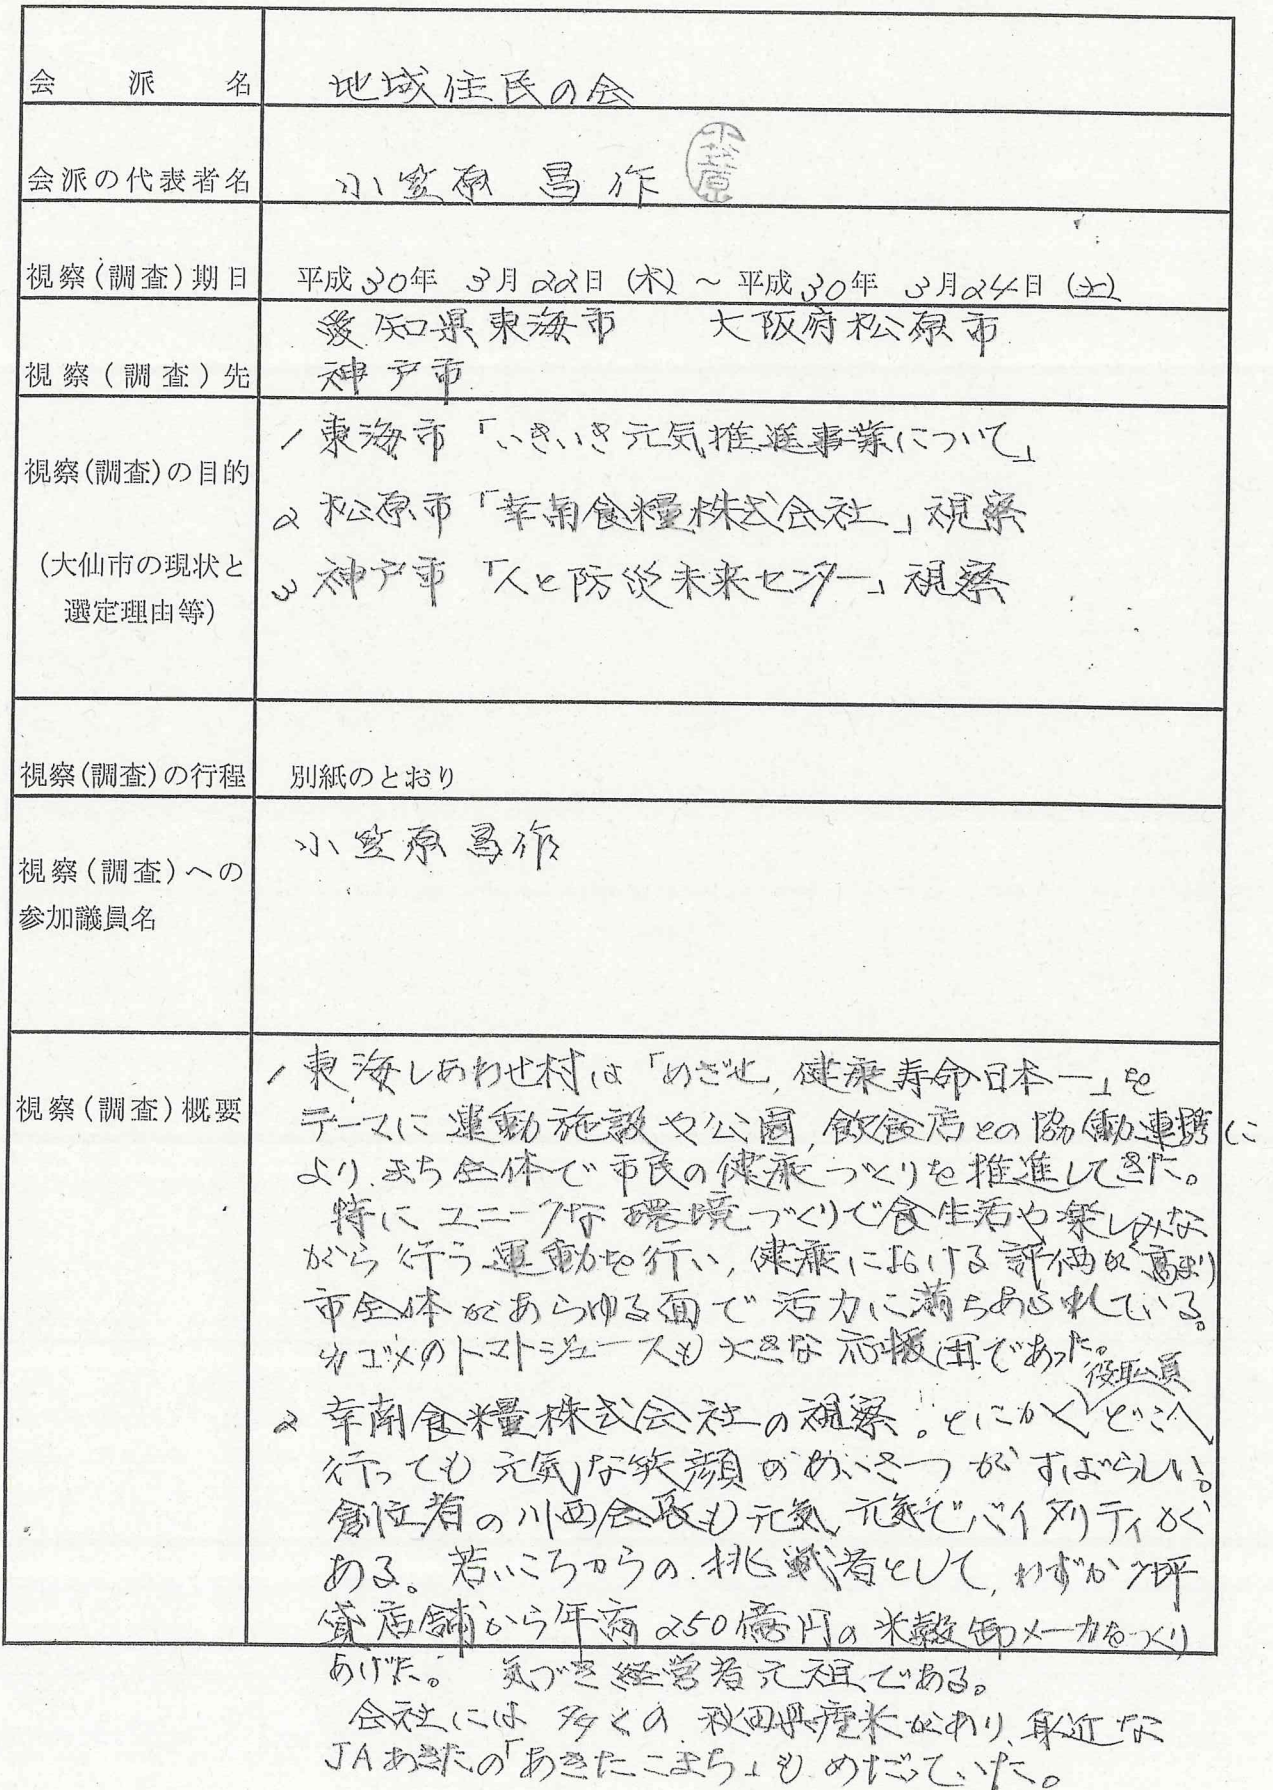 会派名 地域住民の会
会派の代表者名 小笠原 昌作 小笠原
視察(調査)期日 平成30年 3月22日(木)～平成30年 3月24日(土)
愛知県東海市 大阪府松原市
視察(調査)先 神戸市
1 東海市「いきいき元気推進事業について」
視察(調査)の目的
2 松原市「幸南食糧株式会社」視察
(大仙市の現状と
3 神戸市「人と防災未来センター」視察
選定理由等)
視察(調査)の行程 別紙のとおり
小笠原昌作
視察(調査)への
参加議員名
視察(調査)概要
1 東海しあわせ村は「めざせ,健康寿命日本一」を
テーマに運動施設や公園,飲食店との協働連携に
より、まち全体で市民の健康づくりを推進してきた。
特にユニークな環境づくりで食生活や楽しみな
がら行う運動を行い,健康における評価が高まり
市全体があらゆる面で活力に満ちあふれている。
カゴメのトマトジュースも大きな応援団であった。
役職員
2 幸南食糧株式会社の視察。とにかくどこへ
行っても元気な笑顔のあいさつがすばらしい。
創立者の川西会長も元気,元気でバイタリティがが
ある。若いころからの挑戦者として,わずか7坪
貸店舗から年商250億円の米穀卸メーカをつくり
あげた。 気づき経営者元祖である。
会社には多くの秋田県産米があり、身近な
JAあきたの「あきたこまち」もめだっていた。